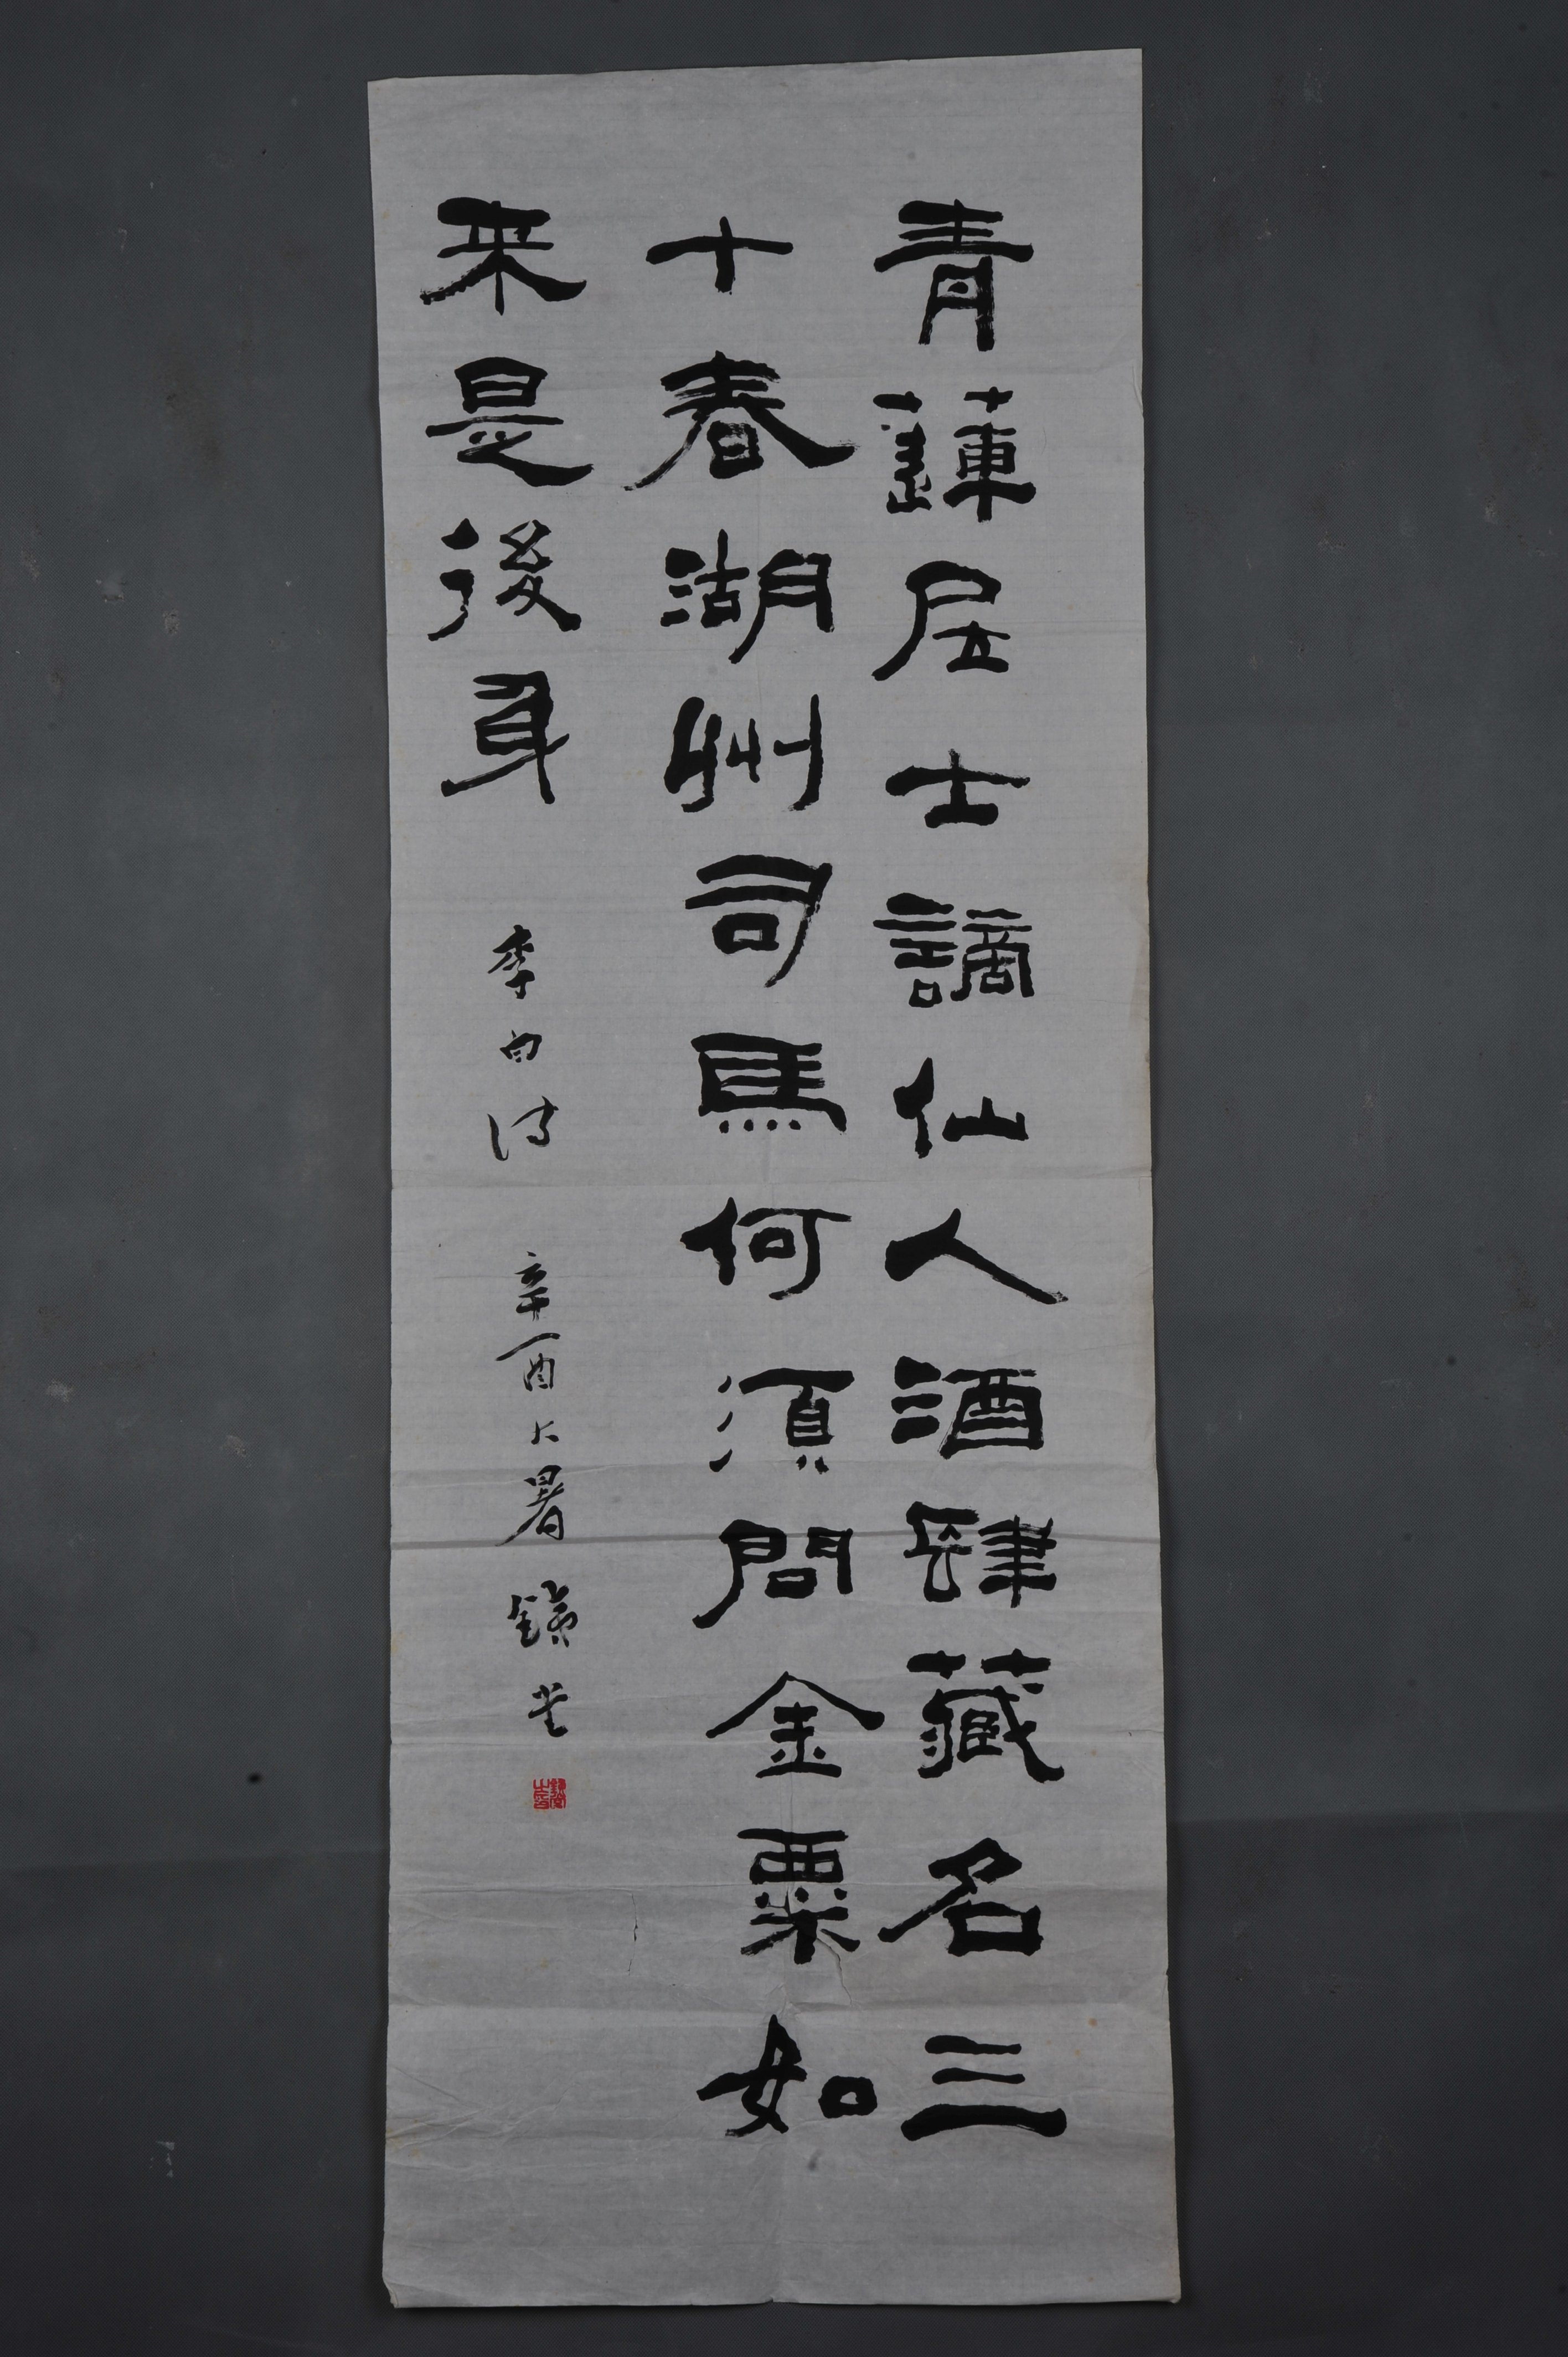 青蓮居士謫仙人酒肆藏名三
十春湖州司馬何須問金粟如
來是後身
李白詩 辛酉大暑